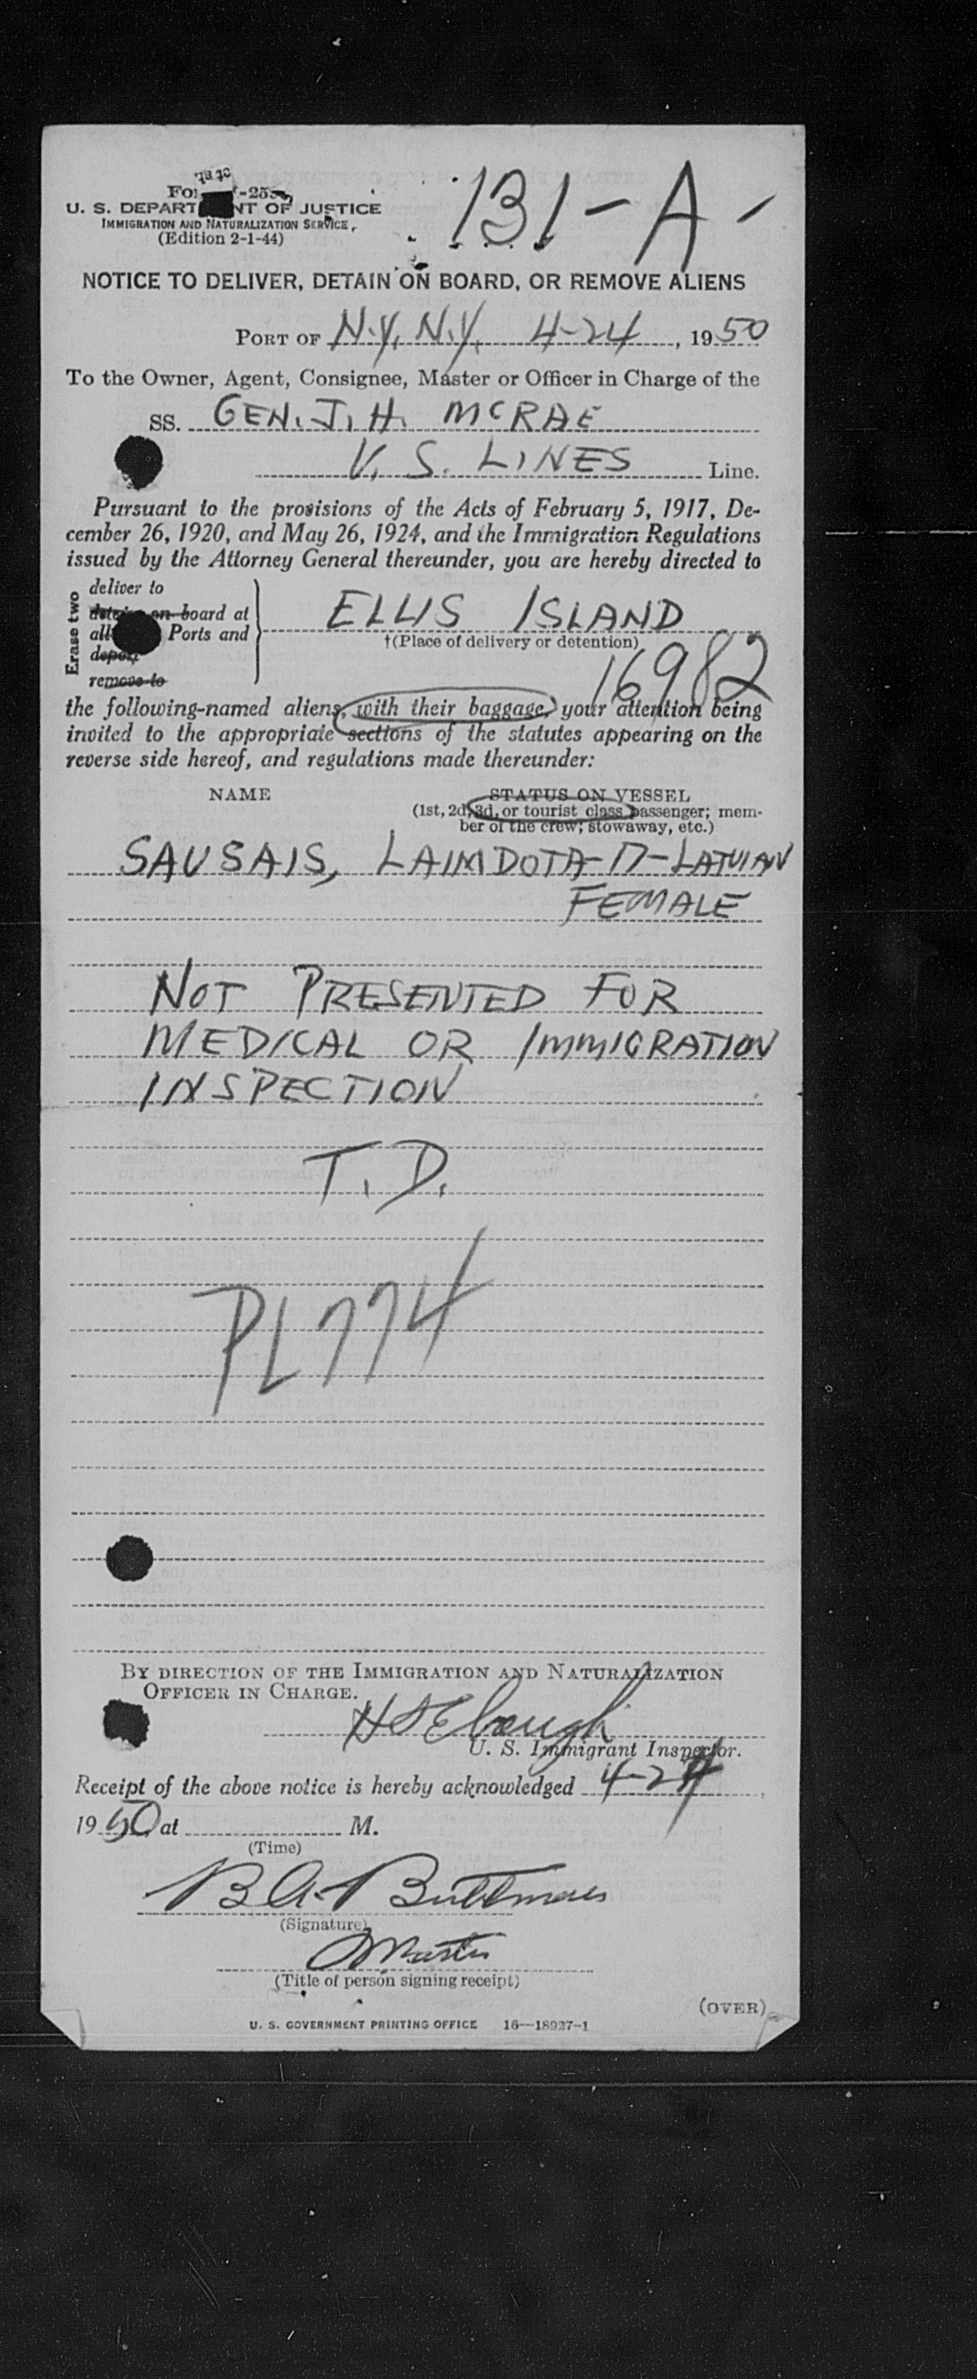 131-A-
U. S. DEPARTMENT OF JUSTICE
IMMIGRATION AND NATURALIZATION SERVICE
(Edition 2-1-44)
NOTICE TO DELIVER, DETAIN ON BOARD, OR REMOVE ALIENS
PORT OF N.Y, N.Y. 4-24, 1950
To the Owner, Agent, Consignee, Master or Officer in Charge of the
SS. GEN. J. H. MCRAE
U. S. LINES Line.
Pursuant to the provisions of the Acts of February 5, 1917, De-
cember 26, 1920, and May 26, 1924, and the Immigration Regulations
issued by the Attorney General thereunder, you are hereby directed to
Erase two
deliver to
detain on board at
all Ports and
deport
remove to
ELLIS ISLAND
†(Place of delivery or detention)
16982
the following-named aliens, with their baggage, your attention being
invited to the appropriate sections of the statutes appearing on the
reverse side hereof, and regulations made thereunder:
NAME STATUS ON VESSEL
(1st, 2d, 3d, or tourist class passenger; mem-
ber of the crew; stowaway, etc.)
SAUSAIS, LAIMDOTA - 17 - LATVIAN
FEMALE
NOT PRESENTED FOR
MEDICAL OR IMMIGRATION
INSPECTION
T. D.
PL 774
BY DIRECTION OF THE IMMIGRATION AND NATURALIZATION
OFFICER IN CHARGE.
U. S. Immigrant Inspector.
Receipt of the above notice is hereby acknowledged 4-24,
1950 at M.
(Time)
(Signature)
Master
(Title of person signing receipt)
(OVER)
U. S. GOVERNMENT PRINTING OFFICE 16—18927-1